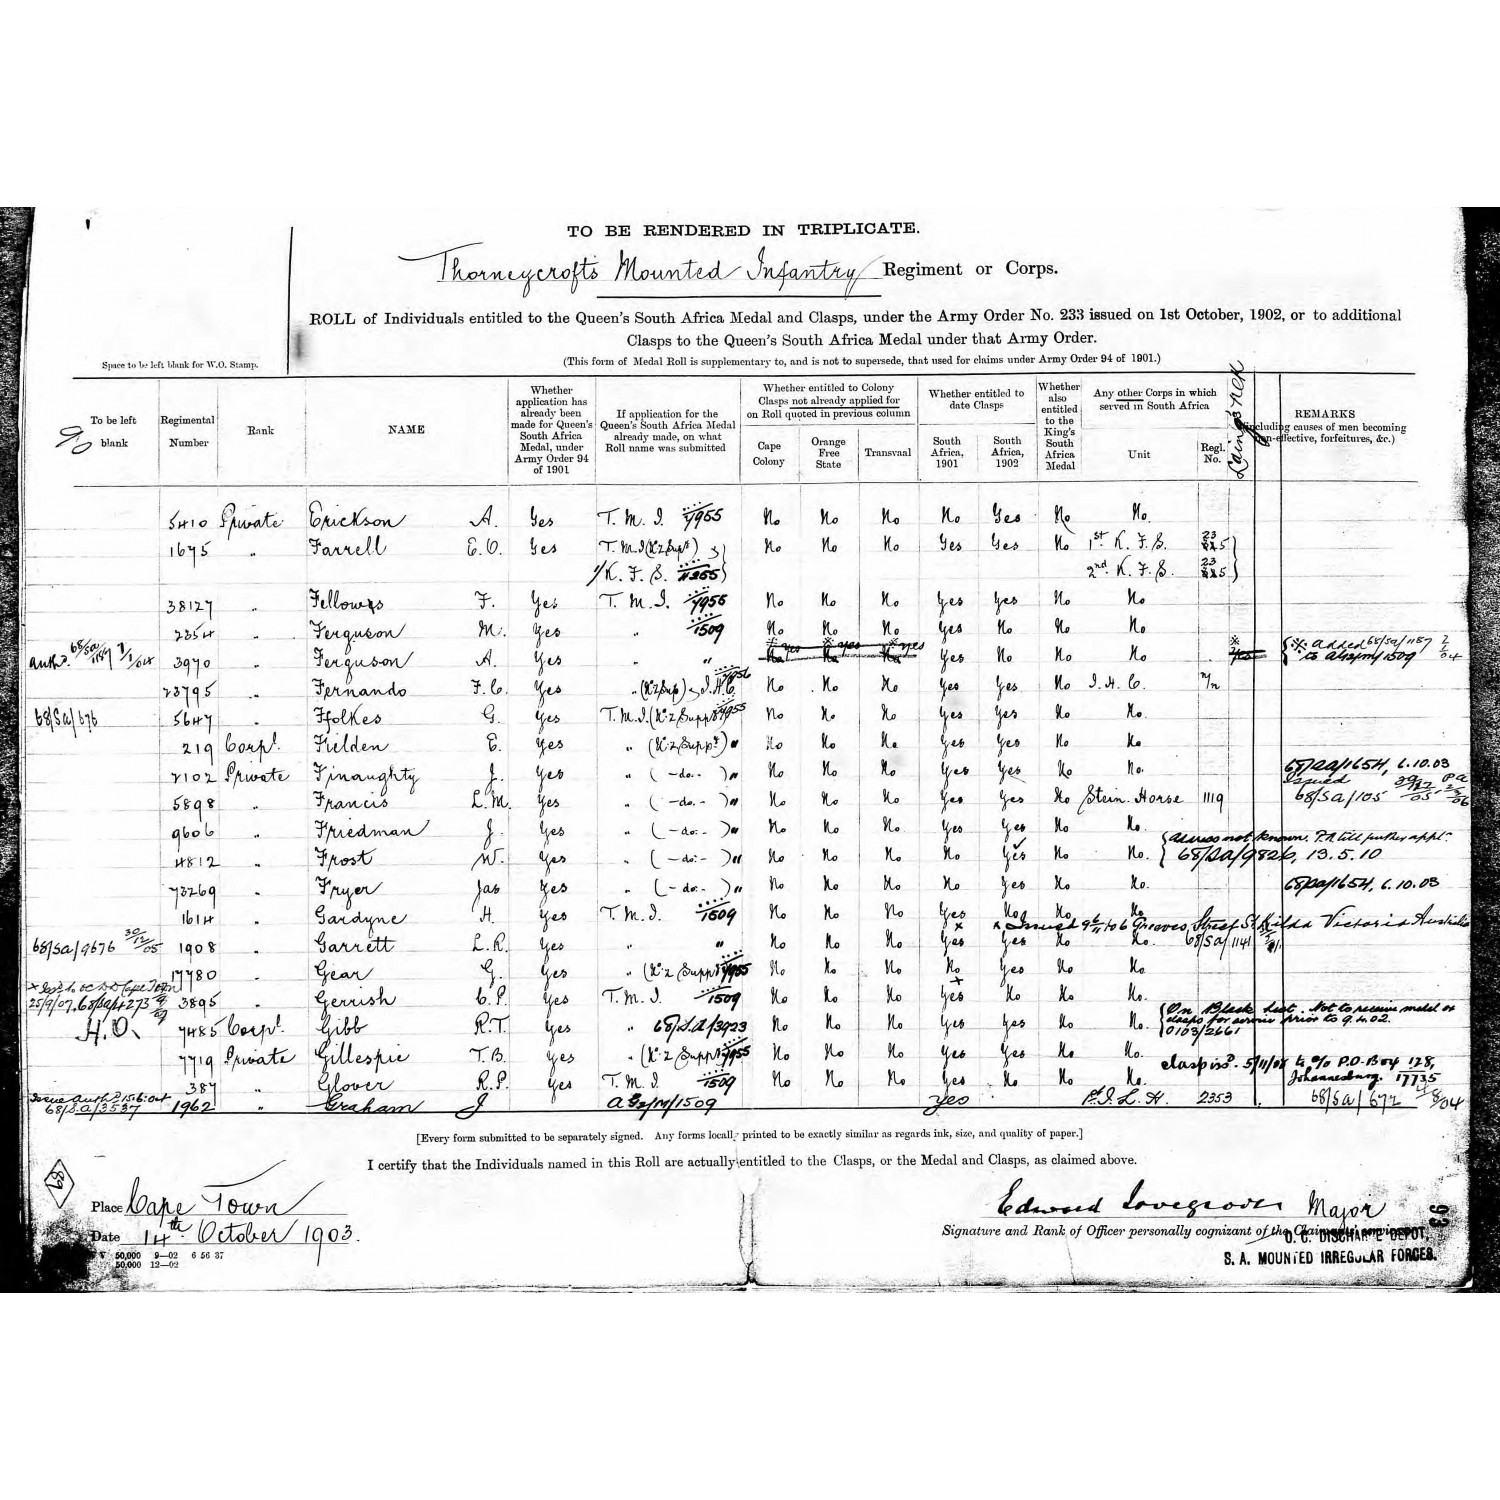 TO BE RENDERED IN TRIPLICATE.
Thorneycrofts Mounted Infantry Regiment or Corps.
ROLL of Individuals entitled to the Queen's South Africa Medal and Clasps, under the Army Order No. 233 issued on 1st October, 1902, or to additional
Clasps to the Queen's South Africa Medal under that Army Order.
(This form of Medal Roll is supplementary to, and is not to supersede, that used for claims under Army Order 94 of 1901.)
Space to be left blank for W.O. Stamp.
To be left blank
Regimental Number
Rank
NAME
Whether application has already been made for Queen's South Africa Medal, under Army Order 94 of 1901
If application for the Queen's South Africa Medal already made, on what Roll name was submitted
Whether entitled to Colony Clasps not already applied for on Roll quoted in previous column
Cape Colony
Orange Free State
Transvaal
Whether entitled to date Clasps
South Africa, 1901
South Africa, 1902
Whether also entitled to the King's South Africa Medal
Any other Corps in which served in South Africa
Unit
Regl. No.
Laing's Nek
REMARKS
(including causes of men becoming non-effective, forfeitures, &c.)
5410 Private Erickson A. Yes T. M. I. 7955 No No No No Yes No No.
1675 " Farrell E.O. Yes T. M. I (K.2 Supt) No No No Yes Yes No 1st K. F. S.
K. F. S. 11255 2nd K. F. S.
38127 " Fellows F. Yes T. M. I. 7955 No No No Yes Yes No No
2354 " Ferguson M. Yes " 1509 No No No Yes No No No
3970 " Ferguson A. Yes " " yes yes yes Yes No No No Yes ※ added 68/SA/1187
to AG2/M/1509
23795 " Fernando F.C. Yes " (K.2 Sup) I.H.C. No No No Yes Yes No I. H. C.
68/SA/676 5647 " Ffolkes G. Yes T.M.I. (K.2 Supp 7955 No No No Yes Yes No No.
219 Corpl. Fielden E. Yes " (K.2 Suppt) " No No No Yes Yes No No
2102 Private Finaughty J. Yes " ( -do.- ) " No No No Yes Yes No No. 68/SA/1654, 6.10.03
5898 " Francis L.M. Yes " ( -do.- ) " No No No Yes Yes No Stein. Horse 1119 Issued 68/SA/105
9606 " Friedman J. Yes " ( -do.- ) " No No No Yes Yes No No.
address not known. P.A till further appl.
4812 " Frost W. Yes " ( -do- ) " No No No No Yes No No. 68/SA/9826, 13.5.10
73269 " Fryer Jas Yes " ( -do.- ) " No No No No Yes No No. 68/SA/1654, 6.10.03
1614 " Gardyne H. Yes T. M. I. 1509 No No No Yes No No No
x Issued Greeves Street St Kilda Victoria Australia
68/SA/9676 30/12/05 1908 " Garrett L.R. Yes " " No No No Yes Yes No No. 68/SA/1141
17780 " Gear G. Yes " (K.2 Suppt 7955 No No No No Yes No No
25/9/07. 68/SA/4273 3895 " Gerrish C.P. Yes T. M. I. 1509 No No No Yes No No No.
On Black List. Not to receive medal or
clasps for service prior to 9.4.02.
0103/2661
H.O. 7485 Corpl. Gibb R.T. Yes " 68/S.A/3923 No No No Yes Yes No No.
7719 Private Gillespie T.B. Yes " (K.2 Suppt 7955 No No No Yes Yes No No.
clasp iss'd. 5/11/08 to c/o P.O. Box 128,
Johannesburg. 17735
387 " Glover R.P. Yes T. M. I. 1509 No No No Yes No No No.
68/S.A/3537 1962 " Graham J AG2/M/1509 Yes I. L. H. 2353 68/SA/672
[Every form submitted to be separately signed. Any forms locally printed to be exactly similar as regards ink, size, and quality of paper.]
I certify that the Individuals named in this Roll are actually entitled to the Clasps, or the Medal and Clasps, as claimed above.
Place Cape Town
Date 14th October 1903.
50,000 9—02 6 56 37
50,000 12—02
Edward Lovegrove Major
Signature and Rank of Officer personally cognizant of the Claimants' services
O. C. DISCHARGE DEPOT,
S. A. MOUNTED IRREGULAR FORCES.
93